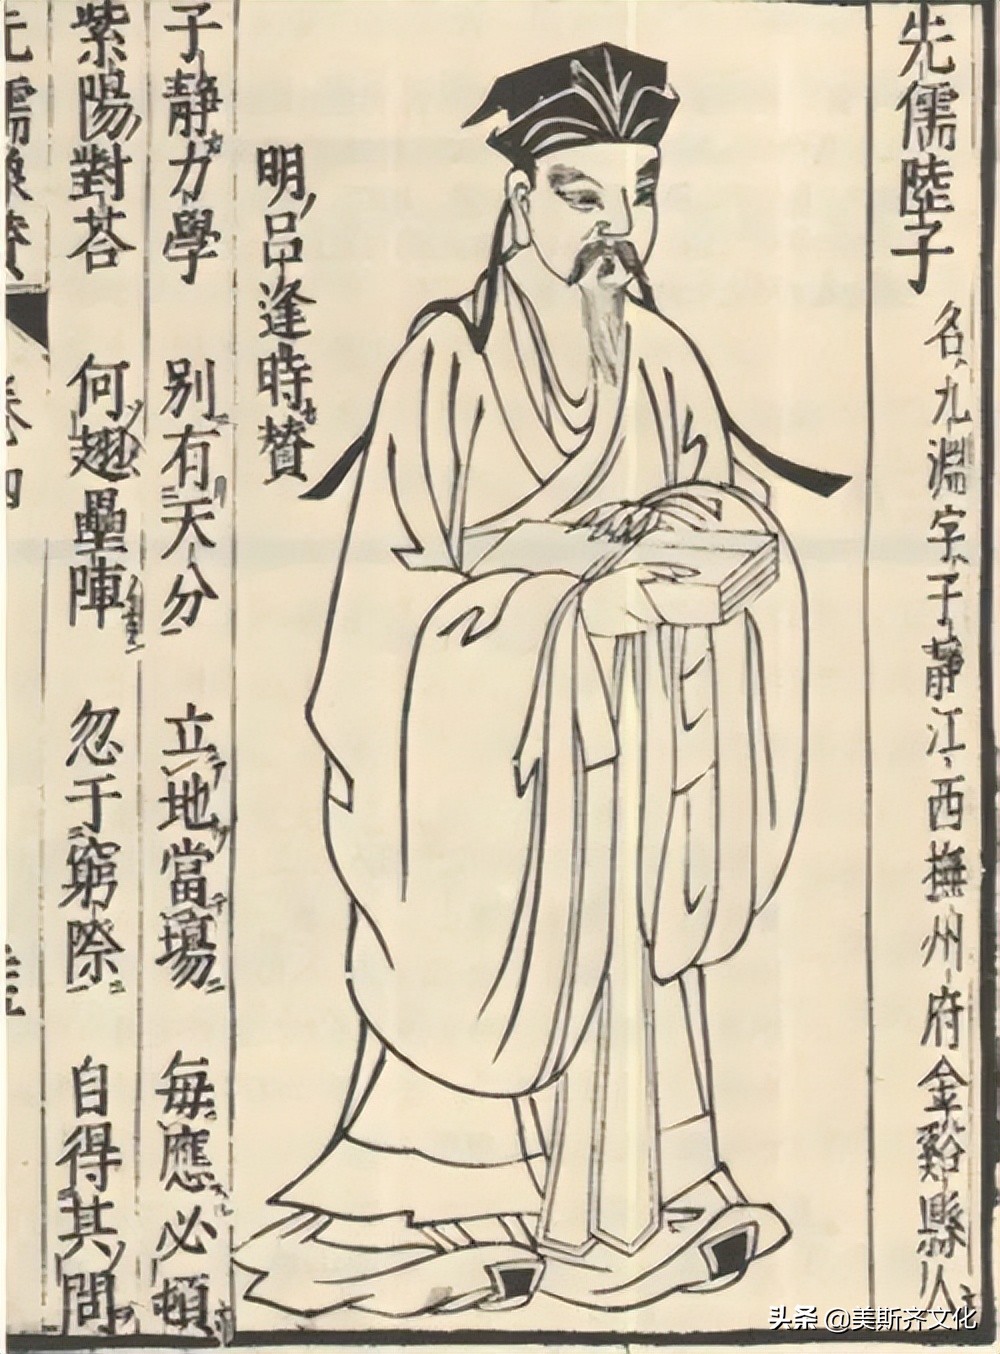 先儒陸子 名九淵字子靜江西撫州府金谿縣人
明呂逢時賛
子靜力學 別有天分 立地當塲 毎應必頓
紫陽對荅 何翅壘陣 忽于窮際 自得其問
头条 @美斯齐文化